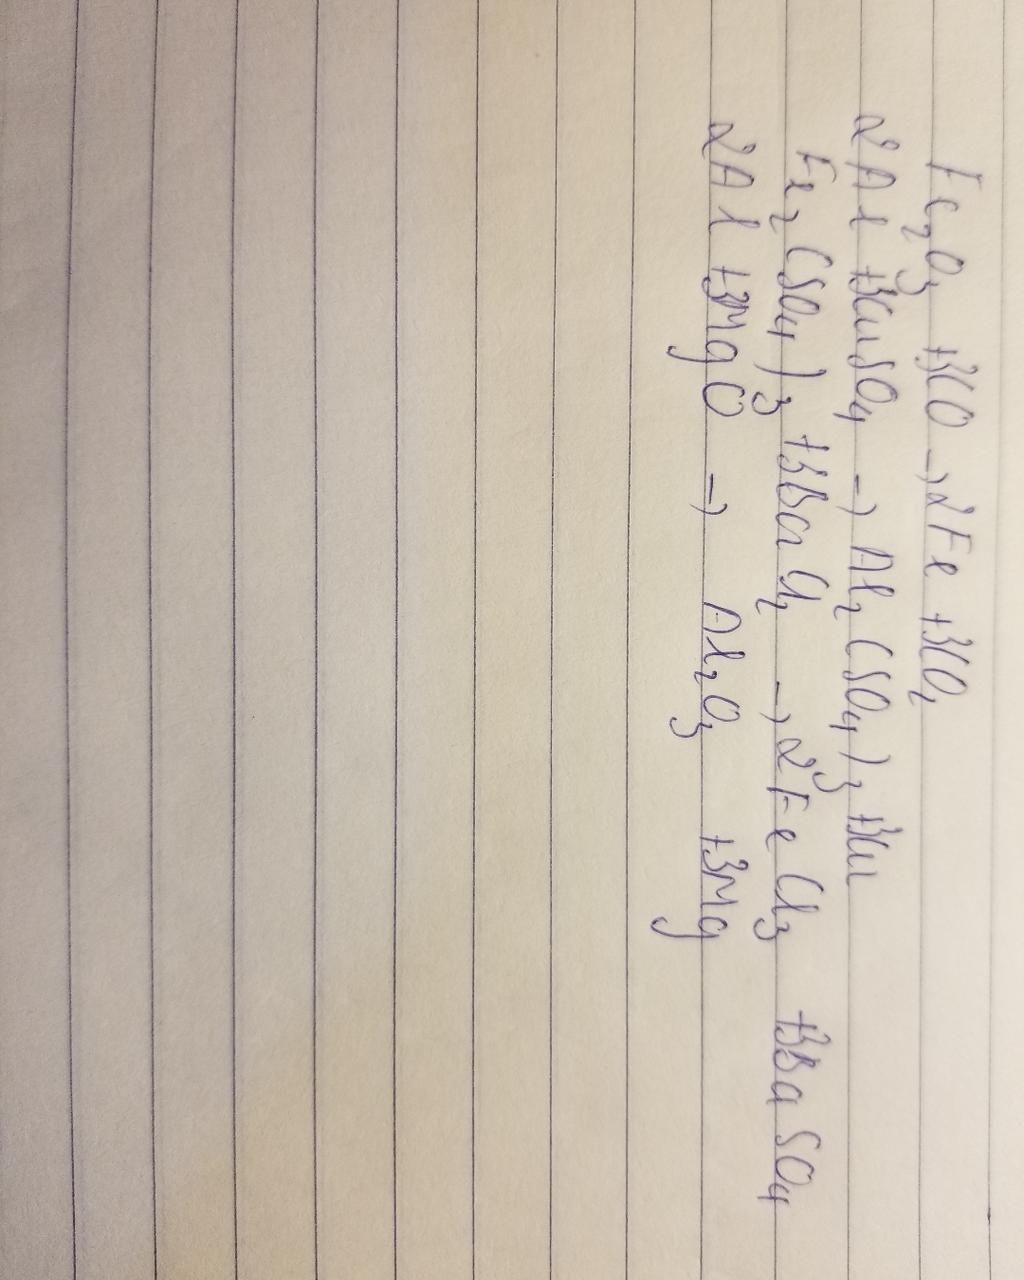 Fe₂O₃ +3CO → 2Fe +3CO₂
2Al +3CuSO₄ → Al₂(SO₄)₃ +3Cu
Fe₂(SO₄)₃ +3BaCl₂ → 2FeCl₃ +3BaSO₄
2Al +3MgO → Al₂O₃ +3Mg